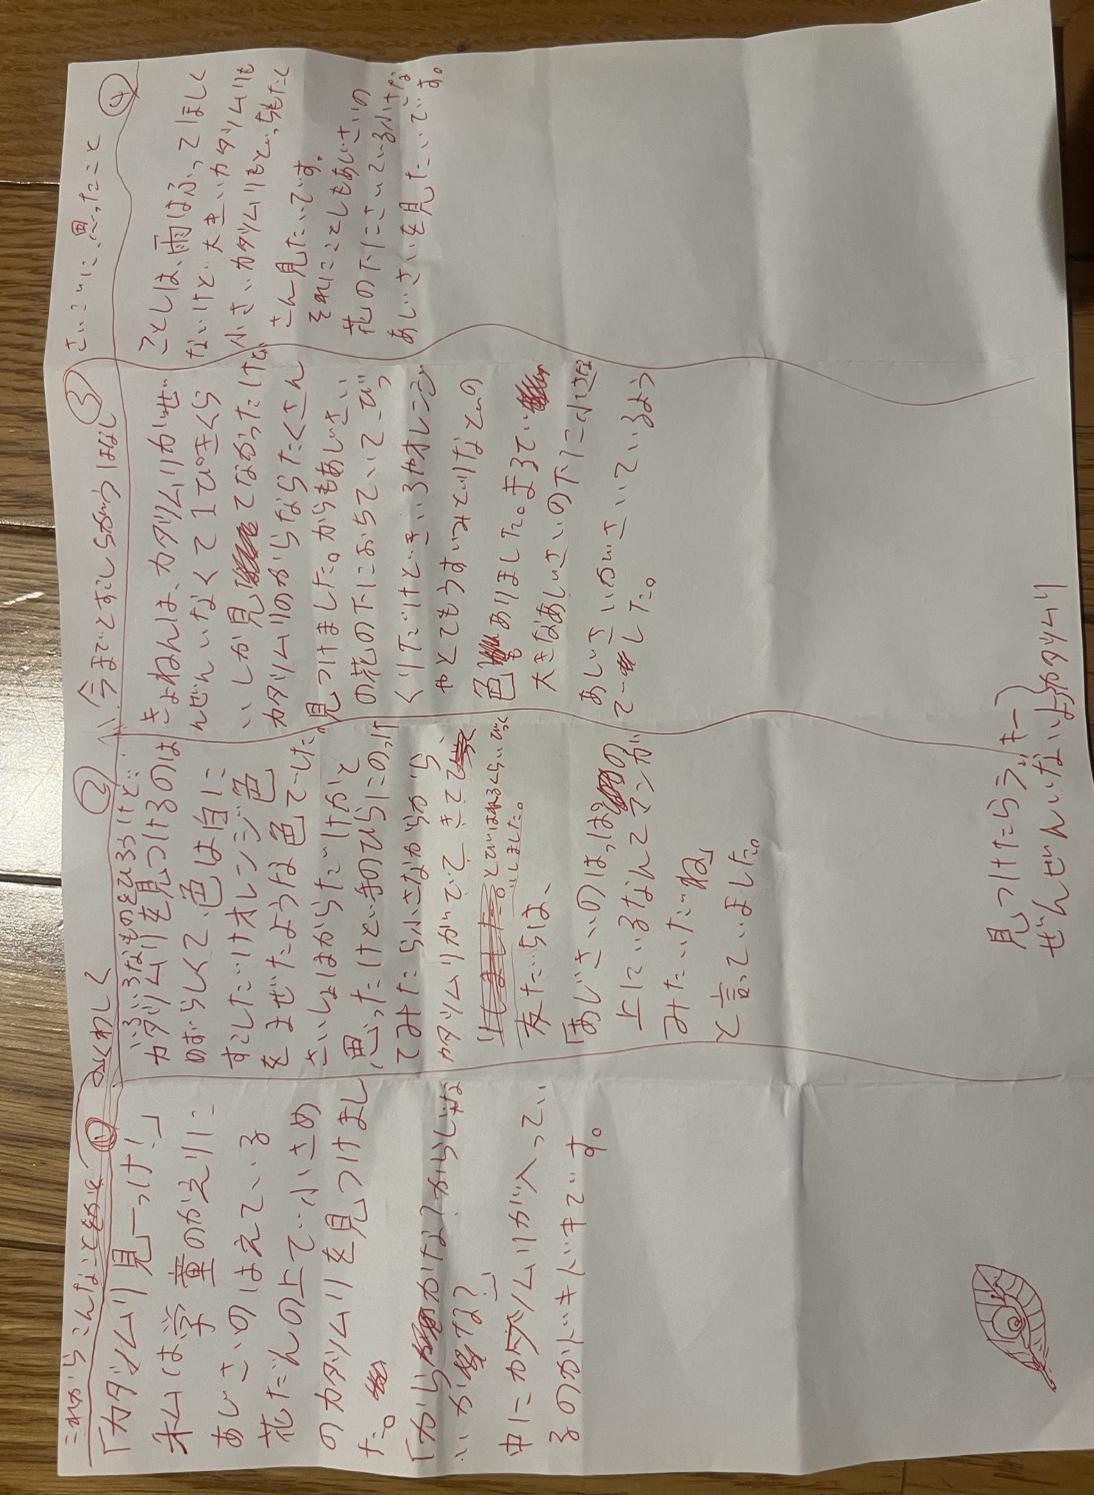 これからこんなことを ①
「カタツムリ見ーっけ!」
私は学童のかえりに
あじさいのはえている
花だんの上で小さめ
のカタツムリを見つけまし
た。
「からかな?からじゃな
いかな?」
中にカタツムリが入ってい
るのかドキドキです。
②
くわしく
いろいろなものをひろうけど、
カタツムリを見つけるのは
めずらしくて、色は白に
すこしだけオレンジ色
をまぜたような色でした。
さいしょはからだけかと
思ったけど手のひらにのっけ
てみたら小さなからから
カタツムリがでてきて
とびはねるくらいびっく
りしました。
友だちは、
「あじさいのはっぱの
上にいるなんてマンガ
みたいだね」
と言っていました。
③
今までとすこしちがうはなし
きょねんは、カタツムリがぜ
んぜんいなくて1ぴきくら
いしか見てなかったけど
カタツムリのからならたくさん
見つけました。からもあじさい
の花の下におちていてびっ
くりだけどきいろやオレンジ
やとてもうすいみどりなどの
色もありました。まるで
大きなあじさいの下に小さな
あじさいがさいているよう
でした。
④
さいごに思ったこと
ことしは、雨はふってほしく
ないけど、大きいカタツムリも
小さいカタツムリもどっちもたく
さん見たいです。
それにことしもあじさいの
花の下にさいている小さな
あじさいを見たいです。
見つけたらラッキー
ぜんぜんいないよカタツムリ